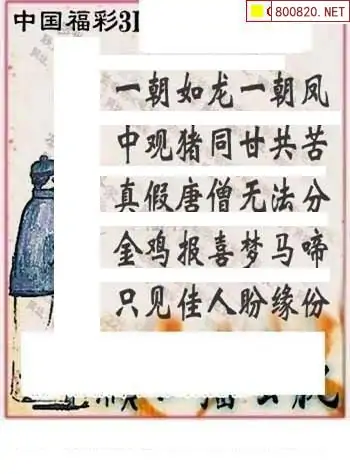 800820.NET
中国福彩3D
一朝如龙一朝凤
中观猪同甘共苦
真假唐僧无法分
金鸡报喜梦马啼
只见佳人盼缘份